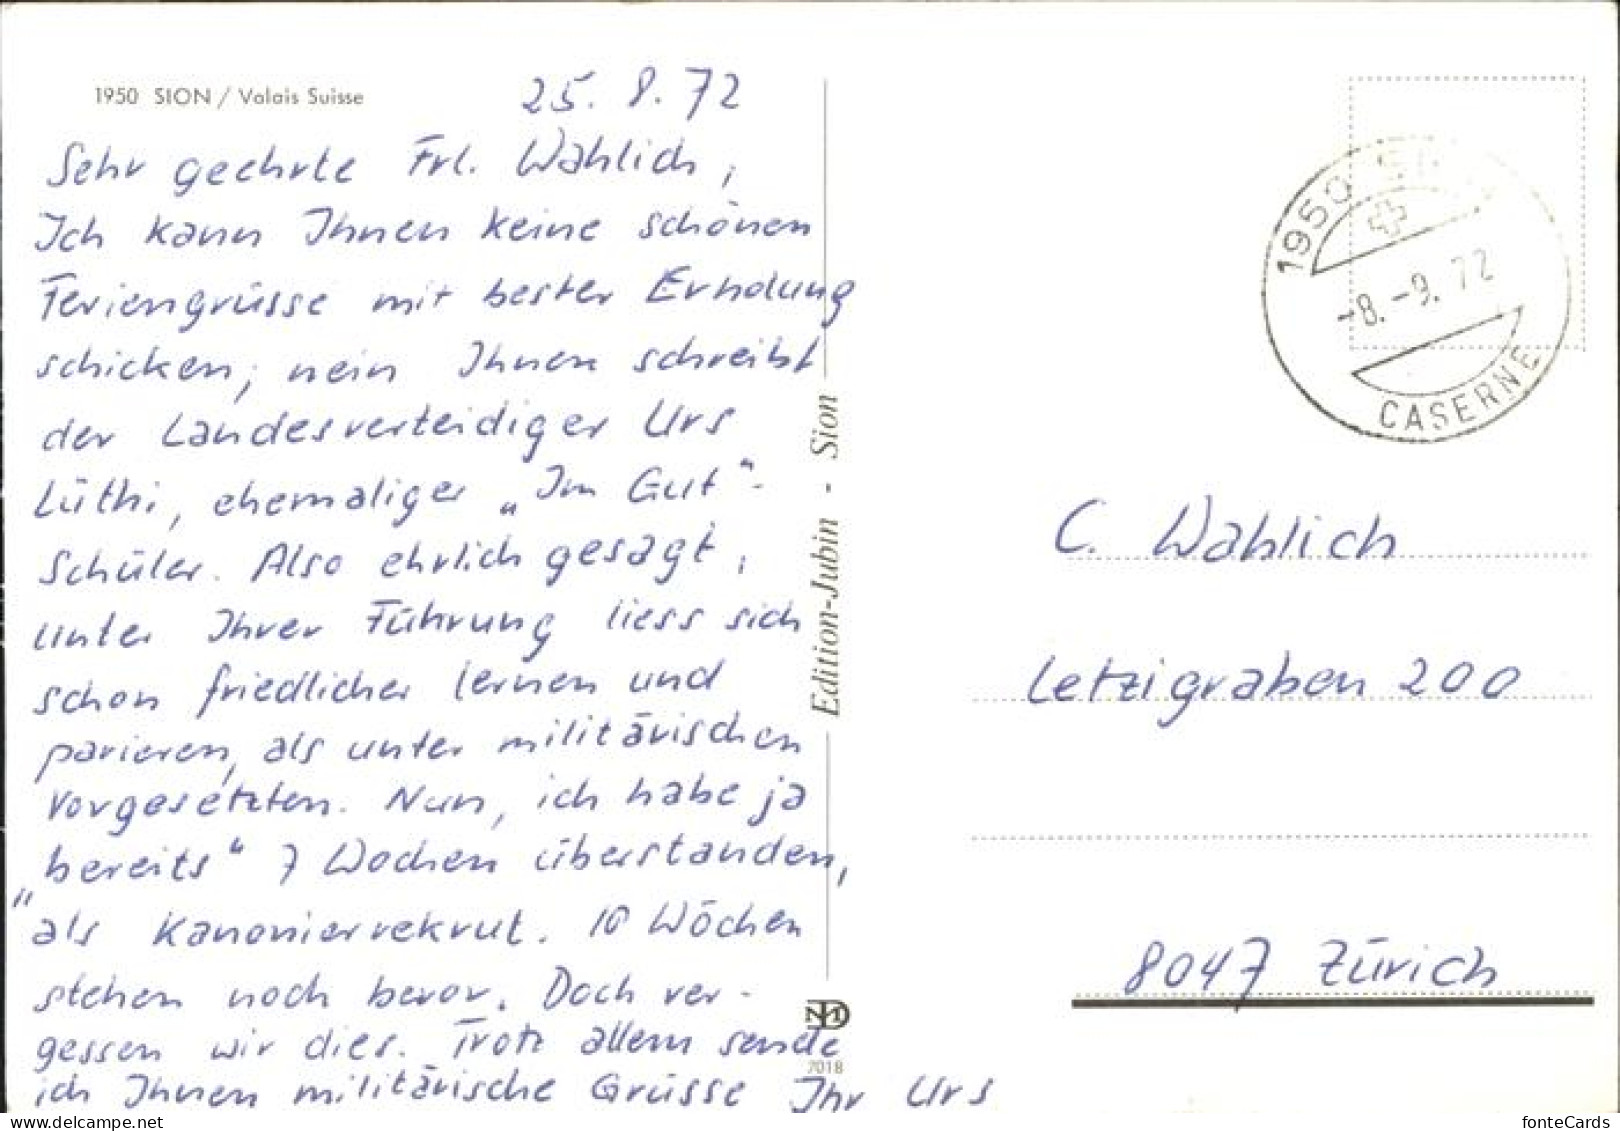 1950 SION / Valais Suisse
25. 8. 72
Sehr geehrte Frl. Wahlich,
Ich kann Ihnen keine schönen
Feriengrüsse mit bester Erholung
schicken, nein Ihnen schreibt
der Landesverteidiger Urs
Lüthi, ehemaliger „Im Gut"-
Schüler. Also ehrlich gesagt,
unter Ihrer Führung liess sich
schon friedlicher lernen und
parieren, als unter militärischen
Vorgesetzten. Nun, ich habe ja
„bereits" 7 Wochen überstanden,
als Kanonierrekrut. 10 Wochen
stehen noch bevor. Doch ver-
gessen wir dies. Trotz allem sende
ich Ihnen militärische Grüsse Ihr Urs
Edition-Jubin - Sion
7018
1950
-8.-9.72
CASERNE
C. Wahlich
Letzigraben 200
8047 Zürich
delcampe.net
fonteCards